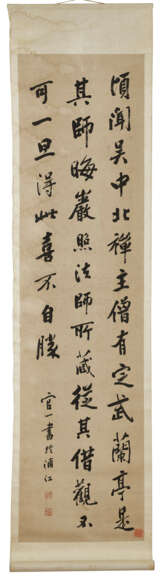 頃聞吳中北禪主僧有定武蘭亭是
其師晦巖照法師所藏從其借觀不
可一旦得此喜不自勝
官一書於浦江